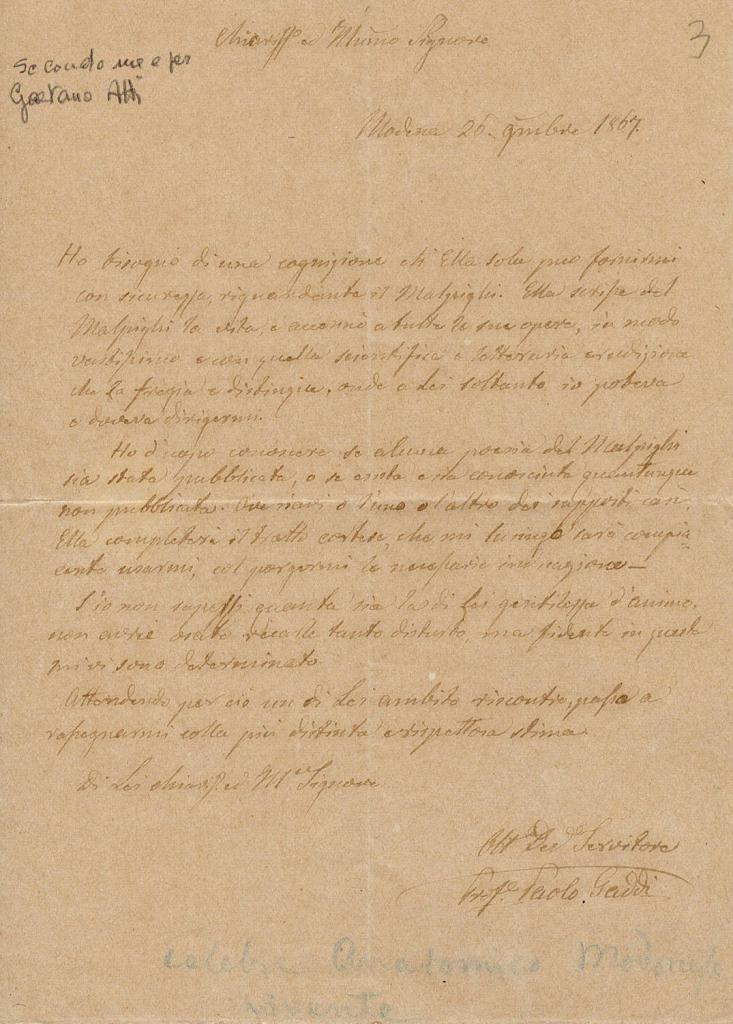 3
Chiariss.º ed Illmo Signore
Secondo me e per
Gaetano Atti
Modena 26. 9mbre 1867.
Ho bisogno di una cognizione che Ella sola può fornirmi
con sicurezza, riguardante il Malpighi. Ella scrisse del
Malpighi la vita, e accennò a tutte le sue opere, in modo
vastissimo e con quella scientifica e letteraria erudizione
che la fregia e distingue, onde a Lei soltanto io poteva
e doveva dirigermi.
Ho d'uopo conoscere se alcuna poesia del Malpighi
sia stata pubblicata, o se esista e sia conosciuta quantunque
non pubblicata. Ove siavi o l'uno o l'altro dei supposti casi,
Ella completerà il tratto cortese, che mi lusingo sarà compia
cente usarmi, col porgermi le necessarie indicazione —
S'io non sapessi quanta sia la di Lei gentilezza d'animo,
non avrei osato recarle tanto disturbo, ma fidente in questa
mi vi sono determinato.
Attendendo perciò un di Lei ambito riscontro, passo a
rassegnarmi colla più distinta e rispettosa stima
Di Lei chiariss. ed Illmo Signore
Obb Dev Servitore
Prof.e Paolo Gaddi
celebre Anatomico Modonese
vivente